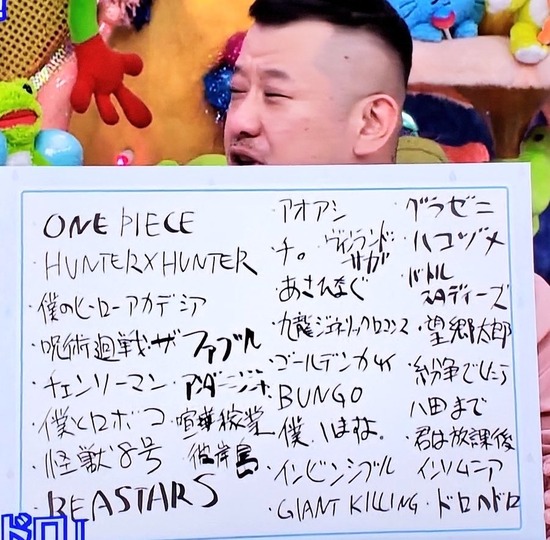 ONE PIECE
HUNTER×HUNTER
・僕のヒーローアカデミア
・呪術廻戦・ザ・ファブル
・チェンソーマン・アンダーニンジャ
・僕とロボコ・喧嘩稼業
・怪獣8号・彼岸島
・BEASTARS
・アオアシ
・チ。・ヴィンランドサガ
・あさひなぐ
・九龍ジェネリックロマンス
・ゴールデンカムイ
・BUNGO
・僕はまだ。
・インビンシブル
・GIANT KILLING
・グラゼニ
・ハコヅメ
・バトルスタディーズ
・望郷太郎
・紛争でしたら
八田まで
・君は放課後
インソムニア
・ドロヘドロ